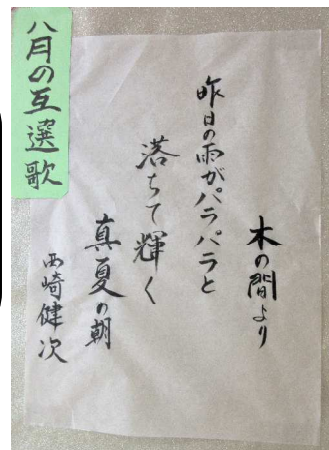 八月の互選歌
木の間より
昨日の雨がパラパラと
落ちて輝く
真夏の朝
西崎健次